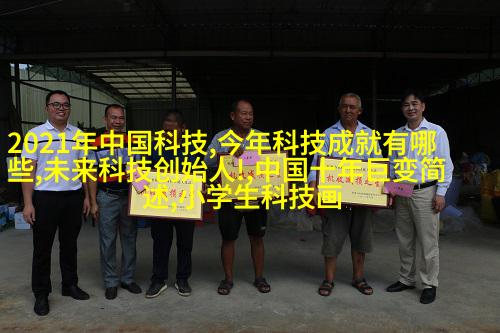 2021年中国科技,今年科技成就有哪
些,未来科技创始人1,中国十年巨变简
述,小学生科技画